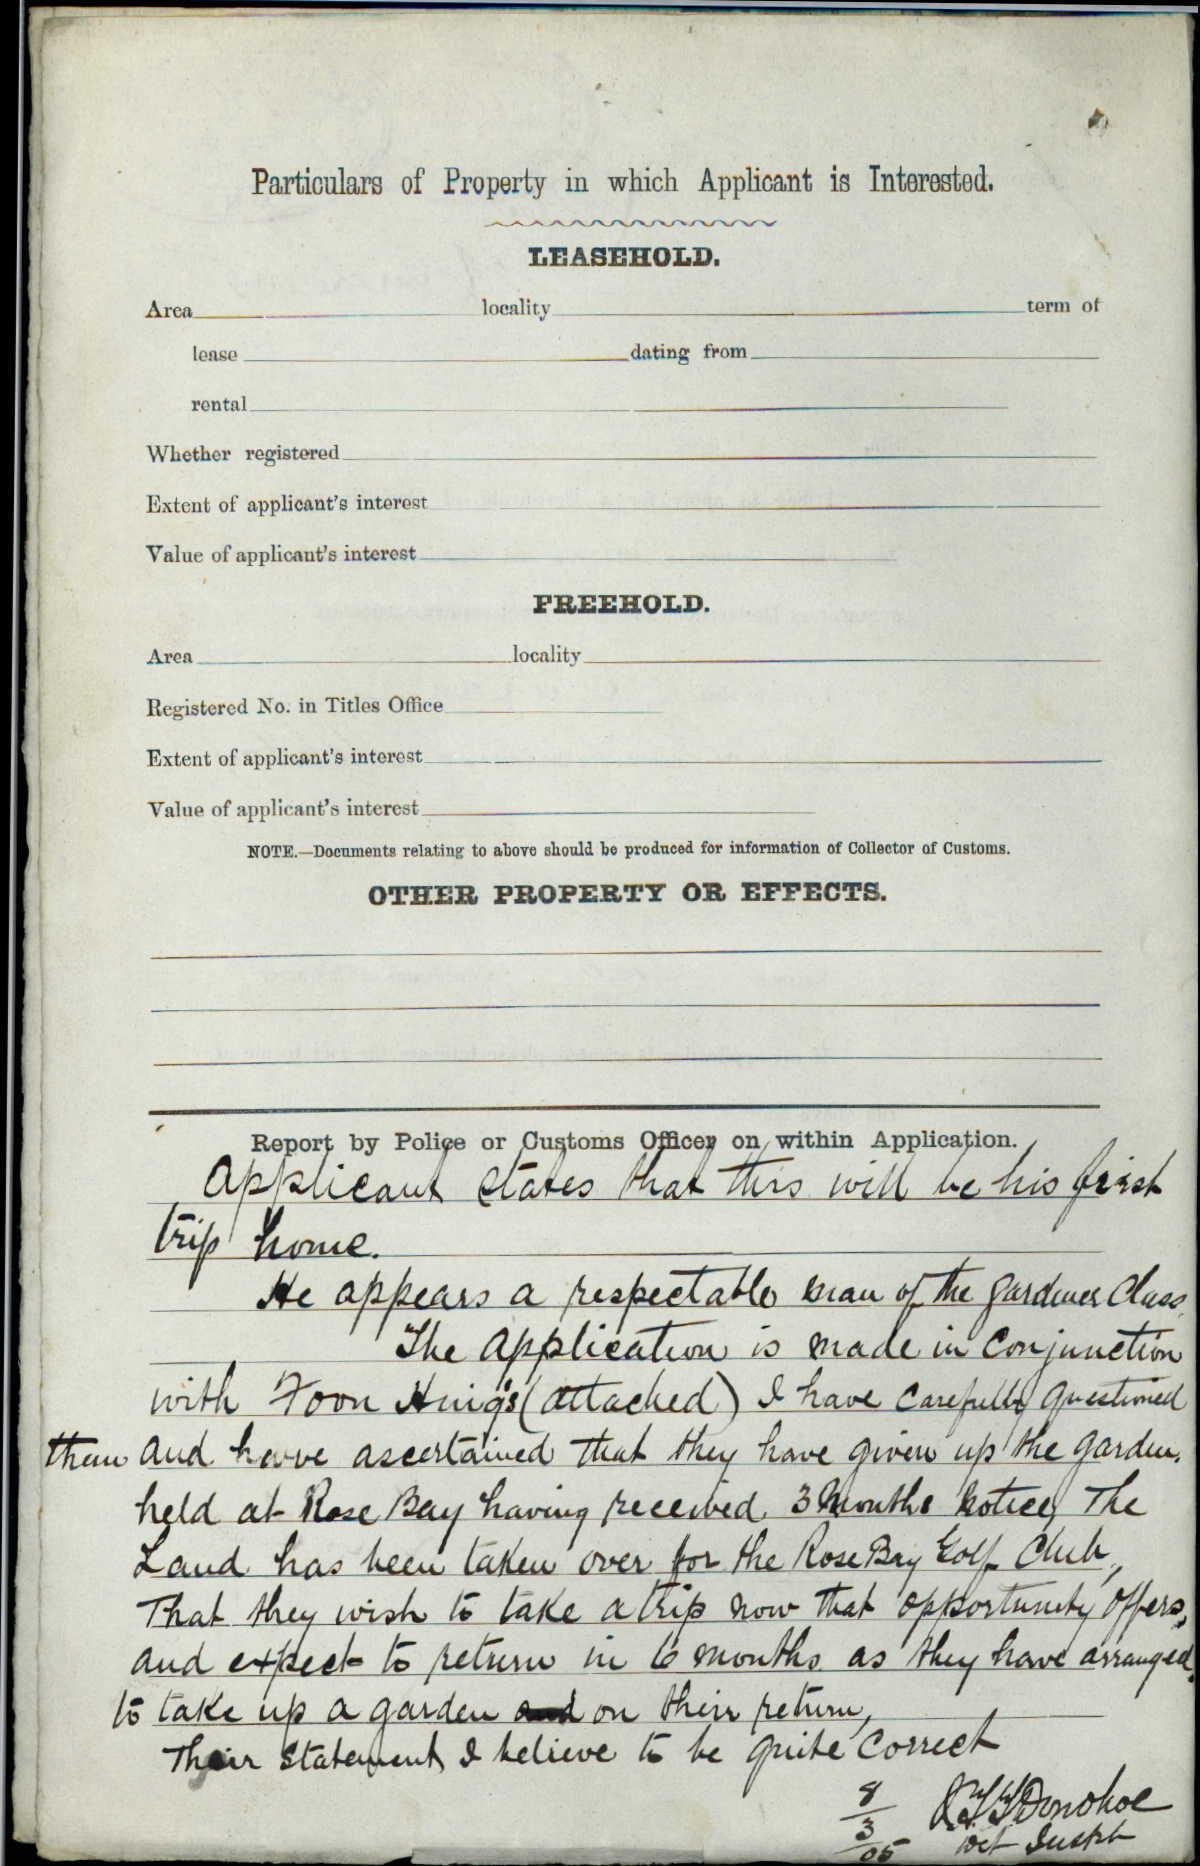 Particulars of Property in which Applicant is Interested.
LEASEHOLD.
Area locality term of
lease dating from
rental
Whether registered
Extent of applicant's interest
Value of applicant's interest
FREEHOLD.
Area locality
Registered No. in Titles Office
Extent of applicant's interest
Value of applicant's interest
NOTE.—Documents relating to above should be produced for information of Collector of Customs.
OTHER PROPERTY OR EFFECTS.
Report by Police or Customs Officer on within Application.
Applicant states that this will be his first
trip home.
He appears a respectable man of the gardener Class.
The Application is made in conjunction
with Foon Hing's (attached) I have carefully questioned
them and have ascertained that they have given up the garden.
held at Rose Bay having received 3 months notice, The
Land has been taken over for the Rose Bay Golf Club,
That they wish to take a trip now that opportunity offers,
and expect to return in 6 months as they have arranged,
to take up a garden and on their return,
Their statement I believe to be quite correct
8/3/05 Donohoe